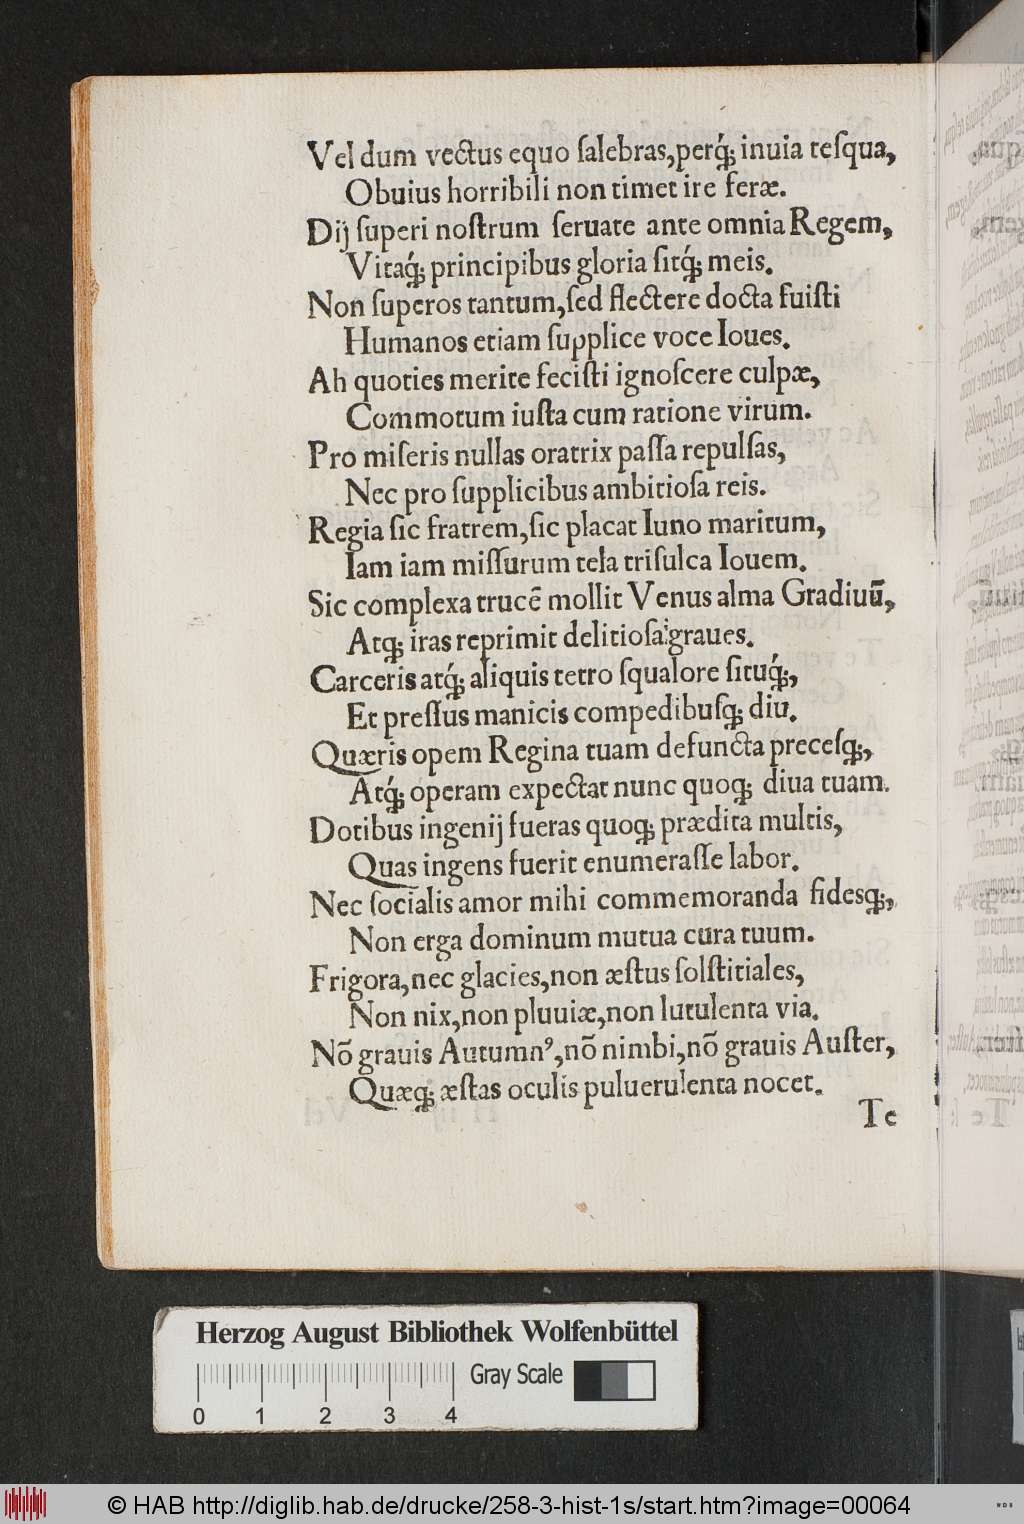 Vel dum vectus equo ſalebras,perq́; inuia teſqua,
Obuius horribili non timet ire feræ.
Dij ſuperi noſtrum ſeruate ante omnia Regem,
Vitaq́; principibus gloria ſitq́; meis.
Non ſuperos tantum,ſed flectere docta fuiſti
Humanos etiam ſupplice voce Ioues.
Ah quoties merite feciſti ignoſcere culpæ,
Commotum iuſta cum ratione virum.
Pro miſeris nullas oratrix paſſa repulſas,
Nec pro ſupplicibus ambitioſa reis.
Regia ſic fratrem,ſic placat Iuno maritum,
Iam iam miſſurum tela triſulca Iouem.
Sic complexa trucē mollit Venus alma Gradiuū,
Atq; iras reprimit delitioſa graues.
Carceris atq́; aliquis tetro ſqualore ſituq́;,
Et preſſus manicis compedibuſq; diu.
Quæris opem Regina tuam defuncta preceſq;,
Atq́; operam expectat nunc quoq; diua tuam.
Dotibus ingenij fueras quoq; prædita multis,
Quas ingens fuerit enumeraſſe labor.
Nec ſocialis amor mihi commemoranda fidesq;,
Non erga dominum mutua cura tuum.
Frigora,nec glacies,non æſtus ſolſtitiales,
Non nix,non pluuiæ,non lutulenta via.
Nō grauis Autumnꝰ,nō nimbi,nō grauis Auſter,
Quæq; æſtas oculis puluerulenta nocet.
Te
Herzog August Bibliothek Wolfenbüttel
Gray Scale
0 1 2 3 4
© HAB http://diglib.hab.de/drucke/258-3-hist-1s/start.htm?image=00064